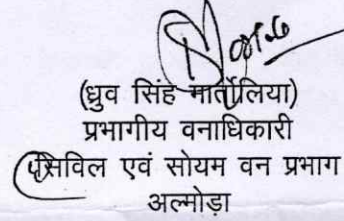 (ध्रुव सिंह मार्तोलिया)
प्रभागीय वनाधिकारी
सिविल एवं सोयम वन प्रभाग
अल्मोड़ा